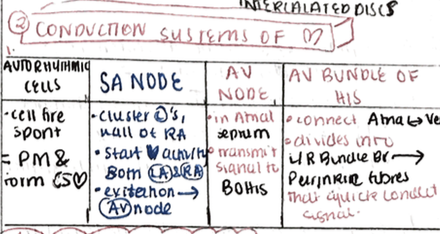 INTERCALATED DISCS
② CONDUCTION SYSTEMS OF ♡
1.
AUTORHYTHMIC CELLS
• cell fire
spont
= PM &
form CS♡
SA NODE
• cluster ©'s,
wall of RA
• start ♥ activity
Both LA & RA
• exitation →
AV node
AV
NODE
• in Atrial
septum
• transmit
signal to
BOHIS
AV BUNDLE OF
HIS
• connect Atria ↔ Ve
• divides into
L/R Bundle Br →
Purkinje fibres
that quickly conduct
signal.